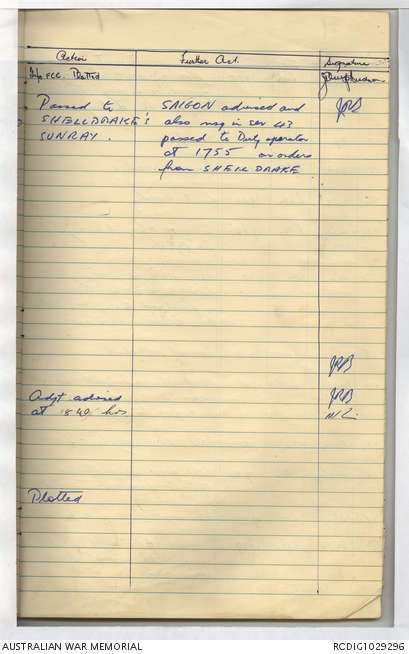 Action Further Act. Signature
Info FCC. Plotted
Passed to SAIGON advised and JRB
SHELLDRAKE'S also msg in ser 43
SUNRAY. passed to Duty operator
at 1755 on orders
from SHELLDRAKE
JRB
Adjt advised JRB
at 1840 hrs
Plotted
AUSTRALIAN WAR MEMORIAL RCDIG1029296